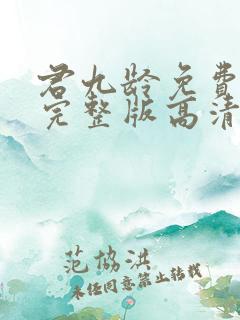 君九龄免费
完整版高清
范协洪
未经同意禁止转载